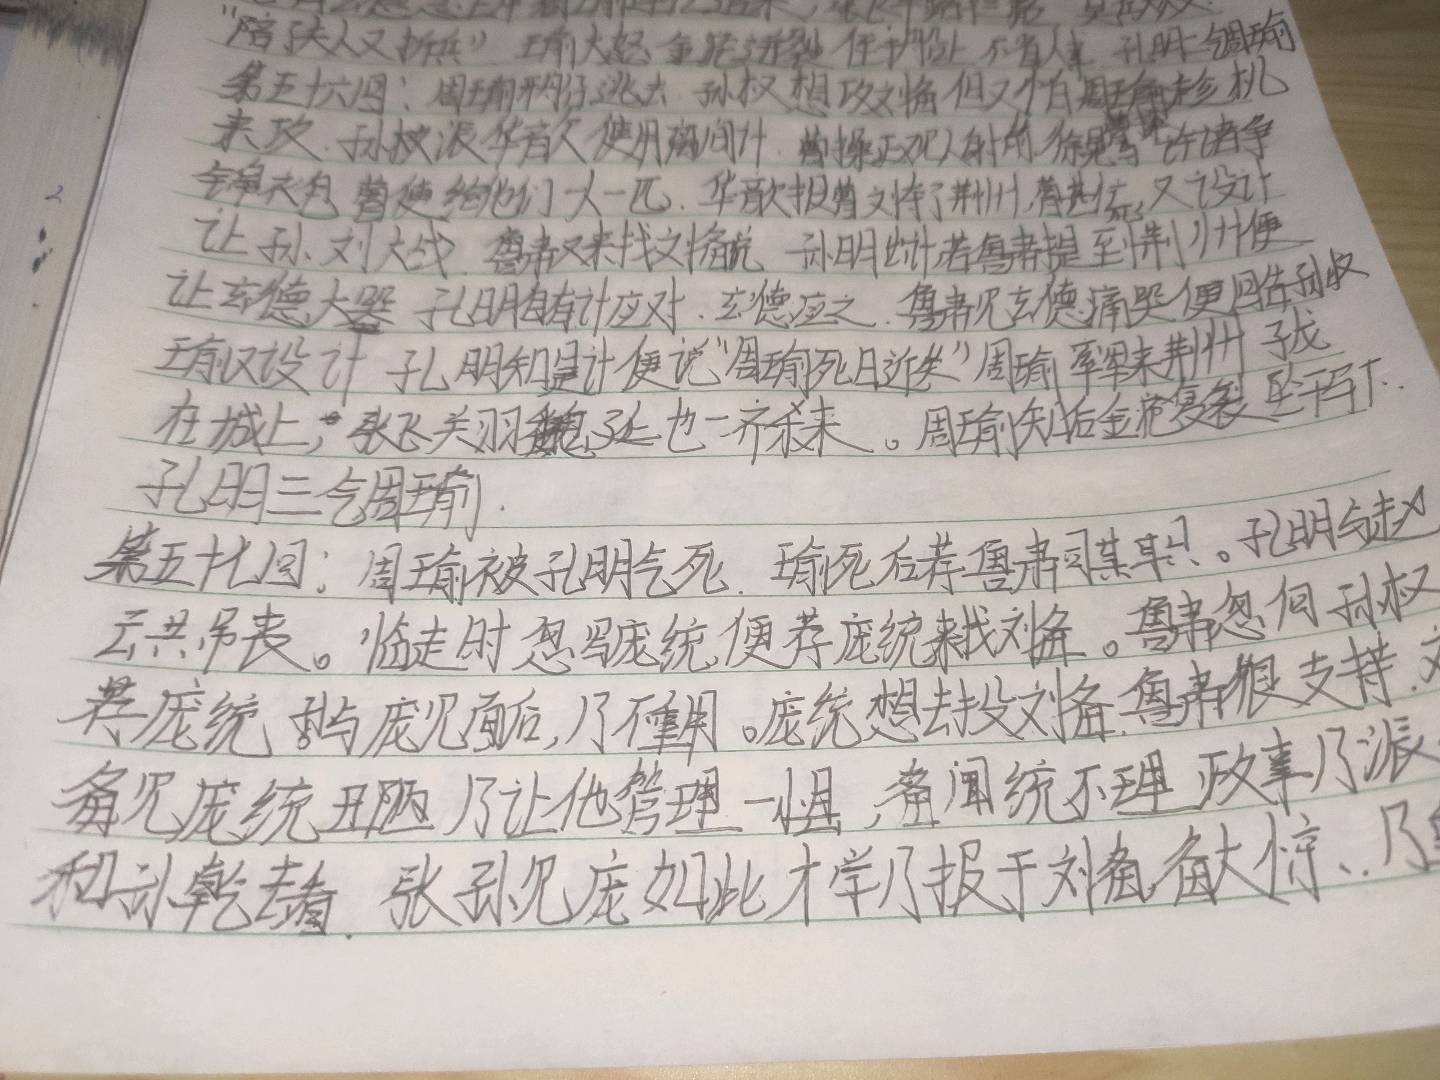 "陪了夫人又折兵" 瑜大怒 金疮迸裂 不省人事 孔明二气周瑜
第五十六回：周瑜 逃去 孙权想攻刘备但又怕曹操趁机
来攻 孙权派华歆使用离间计 曹操正观人射 许诸争
锦衣包 曹便给他们一人一匹 华歆报曹刘夺了荆州 曹 又设计
让孙刘大战 鲁肃又来找刘备 孔明出计若鲁肃提到荆州便
让玄德大哭 孔明自有计应对 玄德应之 鲁肃见玄德痛哭便回告孙权
瑜又设计 孔明知是计便说"周瑜死日近矣"周瑜 军来荆州 子龙
在城上，张飞关羽魏延也一齐杀来。周瑜知后金疮复裂坠于马下.
孔明三气周瑜.
第五十七回：周瑜被孔明气死. 瑜死后荐鲁肃司其职。孔明与赵
云共吊丧。临走时忽 庞统 便荐庞统来找刘备。鲁肃忽向孙权
荐庞统 与庞见面后，乃不重用。庞统想去投刘备 鲁肃很支持.
备见庞统丑陋 乃让他管理一县，备闻统不理政事乃派
和孙乾去看. 张孙见庞如此才学乃报于刘备 备大惊 乃